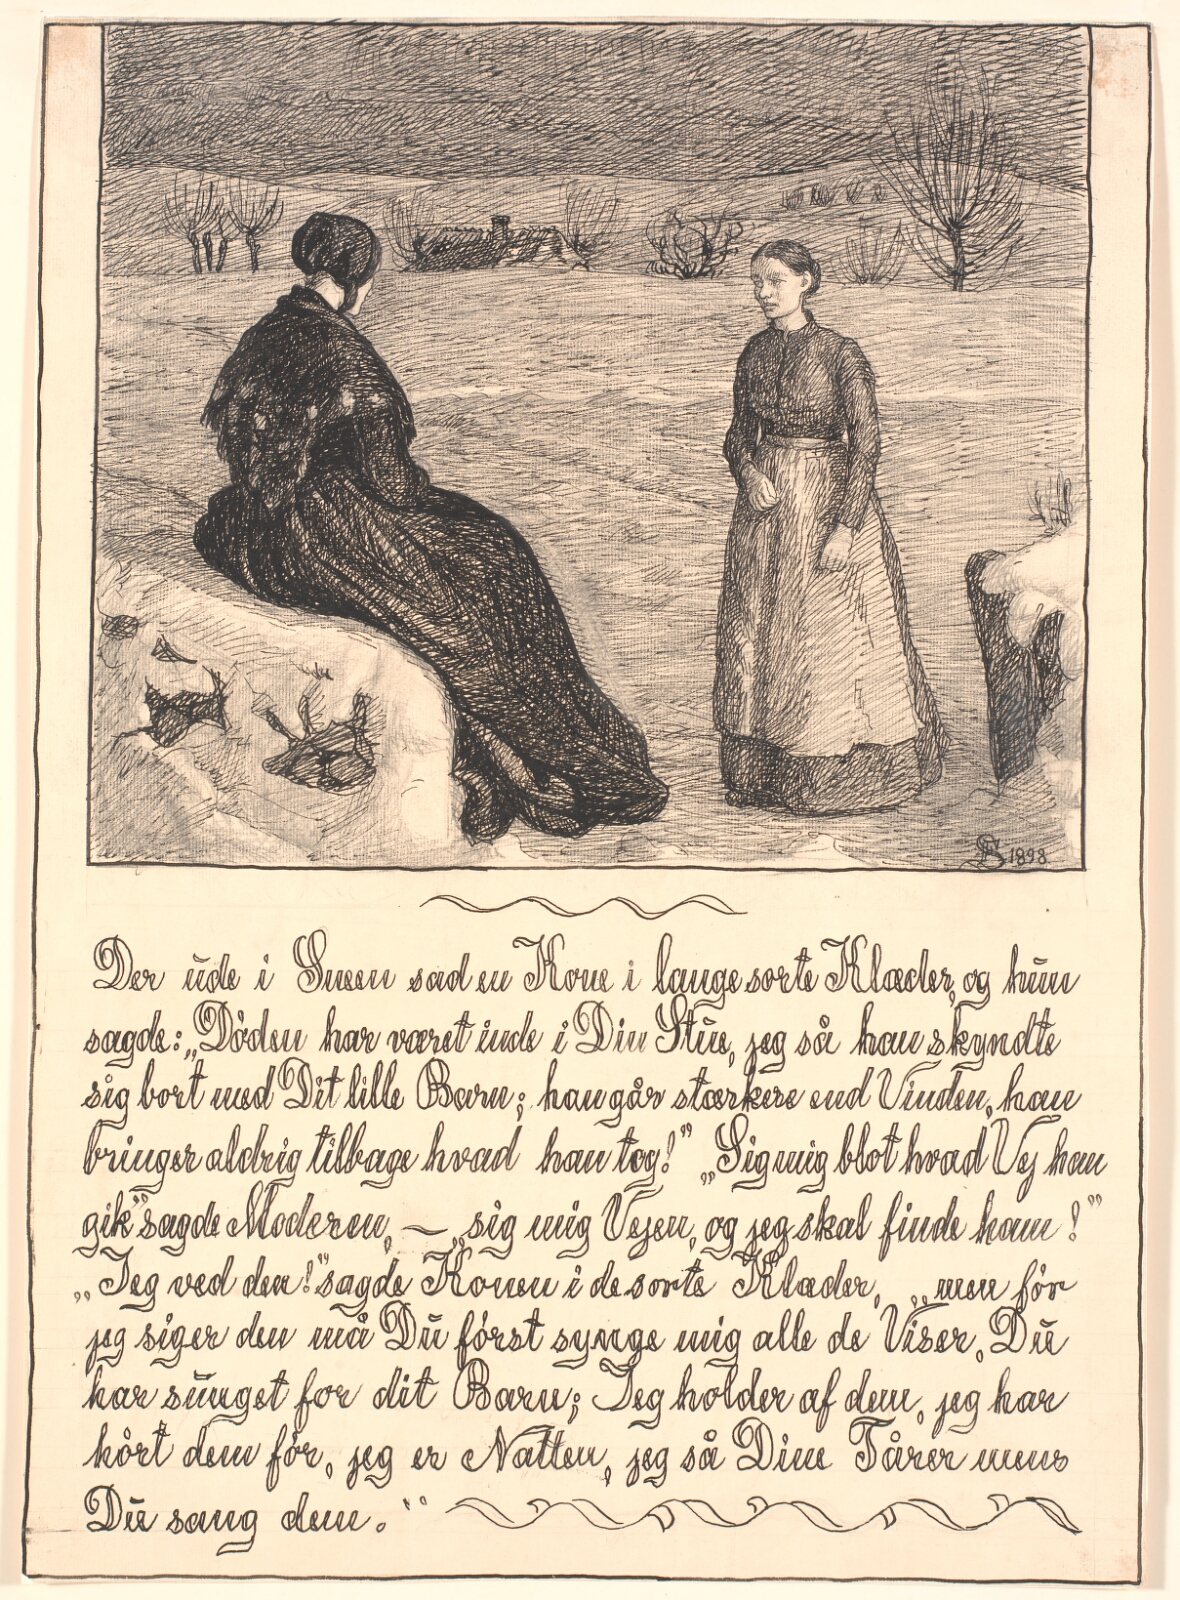 AS 1898
Der ude i Sneen sad en Kone i lange sorte Klæder, og hun
sagde: „Döden har været inde i Din Stue, jeg så han skyndte
sig bort med Dit lille Barn; han går stærkere end Vinden, han
bringer aldrig tilbage hvad han tog!” „Sig mig blot hvad Vej han
gik” sagde Moderen, — „sig mig Vejen, og jeg skal finde ham!”
„Jeg ved den!” sagde Konen i de sorte Klæder, „men för
jeg siger den må Du först synge mig alle de Viser, Du
har sunget for dit Barn; Jeg holder af dem, jeg har
hört dem för, jeg er Natten, jeg så Dine Tårer mens
Du sang dem.”